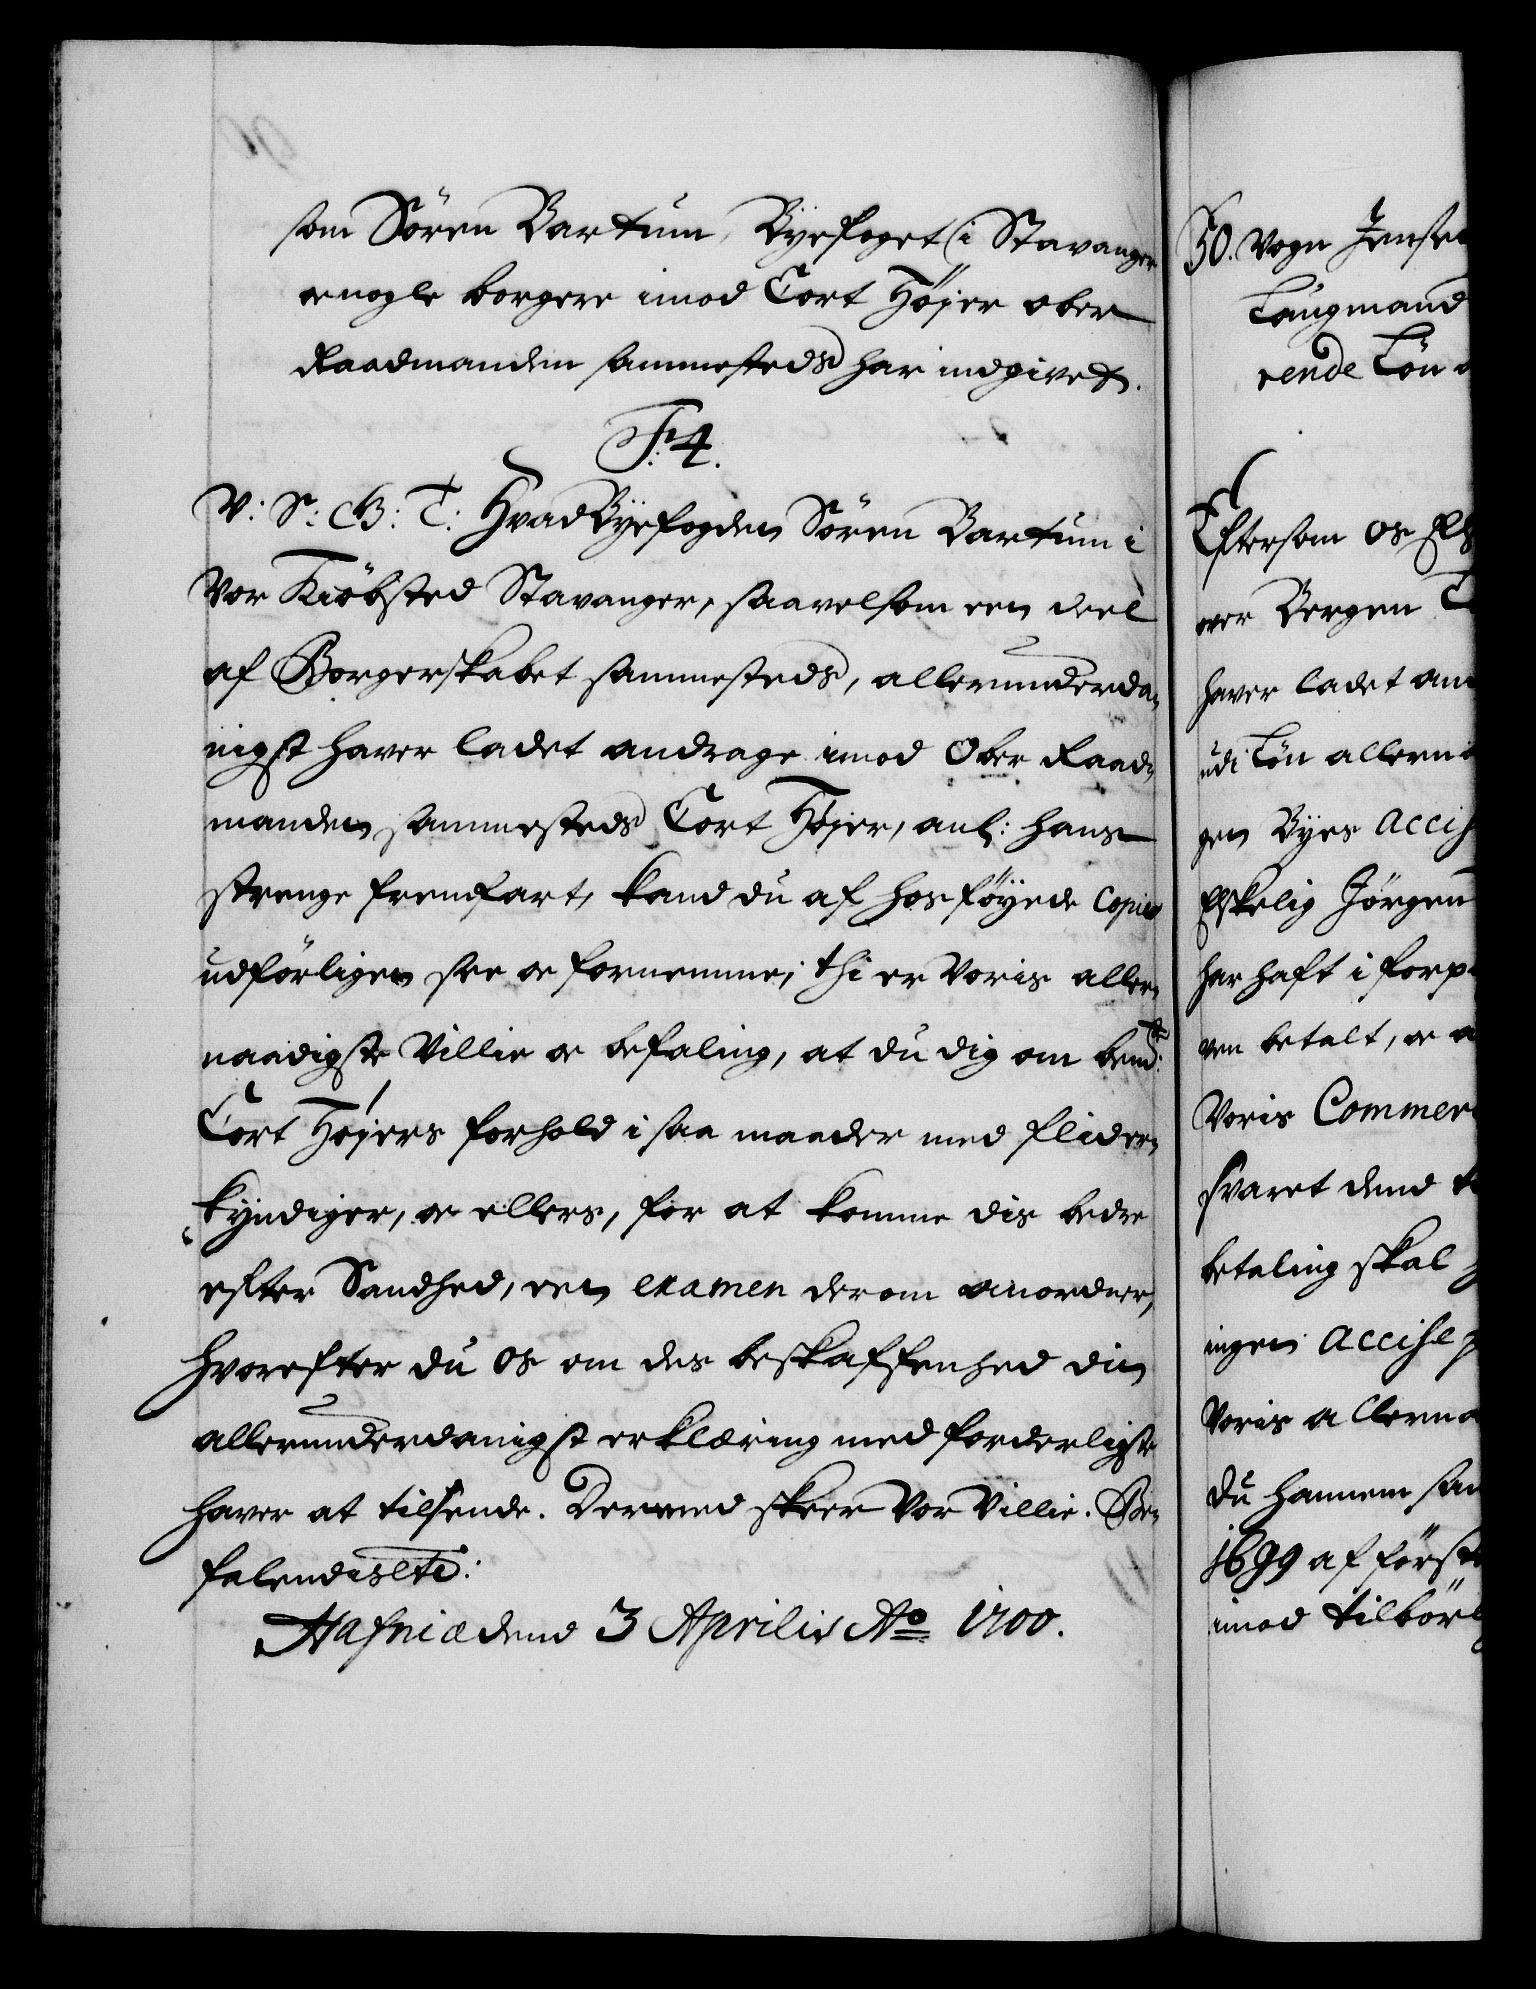 som Sören Bartum, Byefoget i Stavanger
oc nogle borgere imod Cort Höyer ober
Raadmanden sammesteds har indgivet.
F: 4.
V: S: G: T: Hvad Byefogden Sören Bartum i
Vor Kiöbsted Stavanger, saavelsom een deel
af Borgerskabet sammesteds, allerunderda-
nigst haver ladet andrage imod Ober Raad-
manden sammesteds Cort Höyer, anl: hans
strenge fremfart, kand du af hosföyede Copier
udförligen see oc fornemme; thi er Voris aller-
naadigste Villie oc befaling, at du dig om bemte:
Cort Höyers forhold i saa maader med flid er-
kyndiger, oc ellers, for at komme dis bedre
efter Sandhed, een examen derom anordner,
hvorefter du os om des beskaffenhed din
allerunderdanigst erklæring med forderligste
haver at tilsende. Dermed skeer Vor Villie. Be-
falendis etc:
Hafniæ dend 3 Aprilis Ao 1700.
50. Vogn Jensen
Laugmand
rende Lön
Eftersom os El
over Bergen
haver ladet an
udi Lön allern
gen Byes Accis
Elskelig Jörgen
har haft i forp
ven betalt, oc
Voris Commer
svaret dend
betaling skal
ingen Accise
Voris allerna
du hannem saa
1699 af först
imod tilbörl